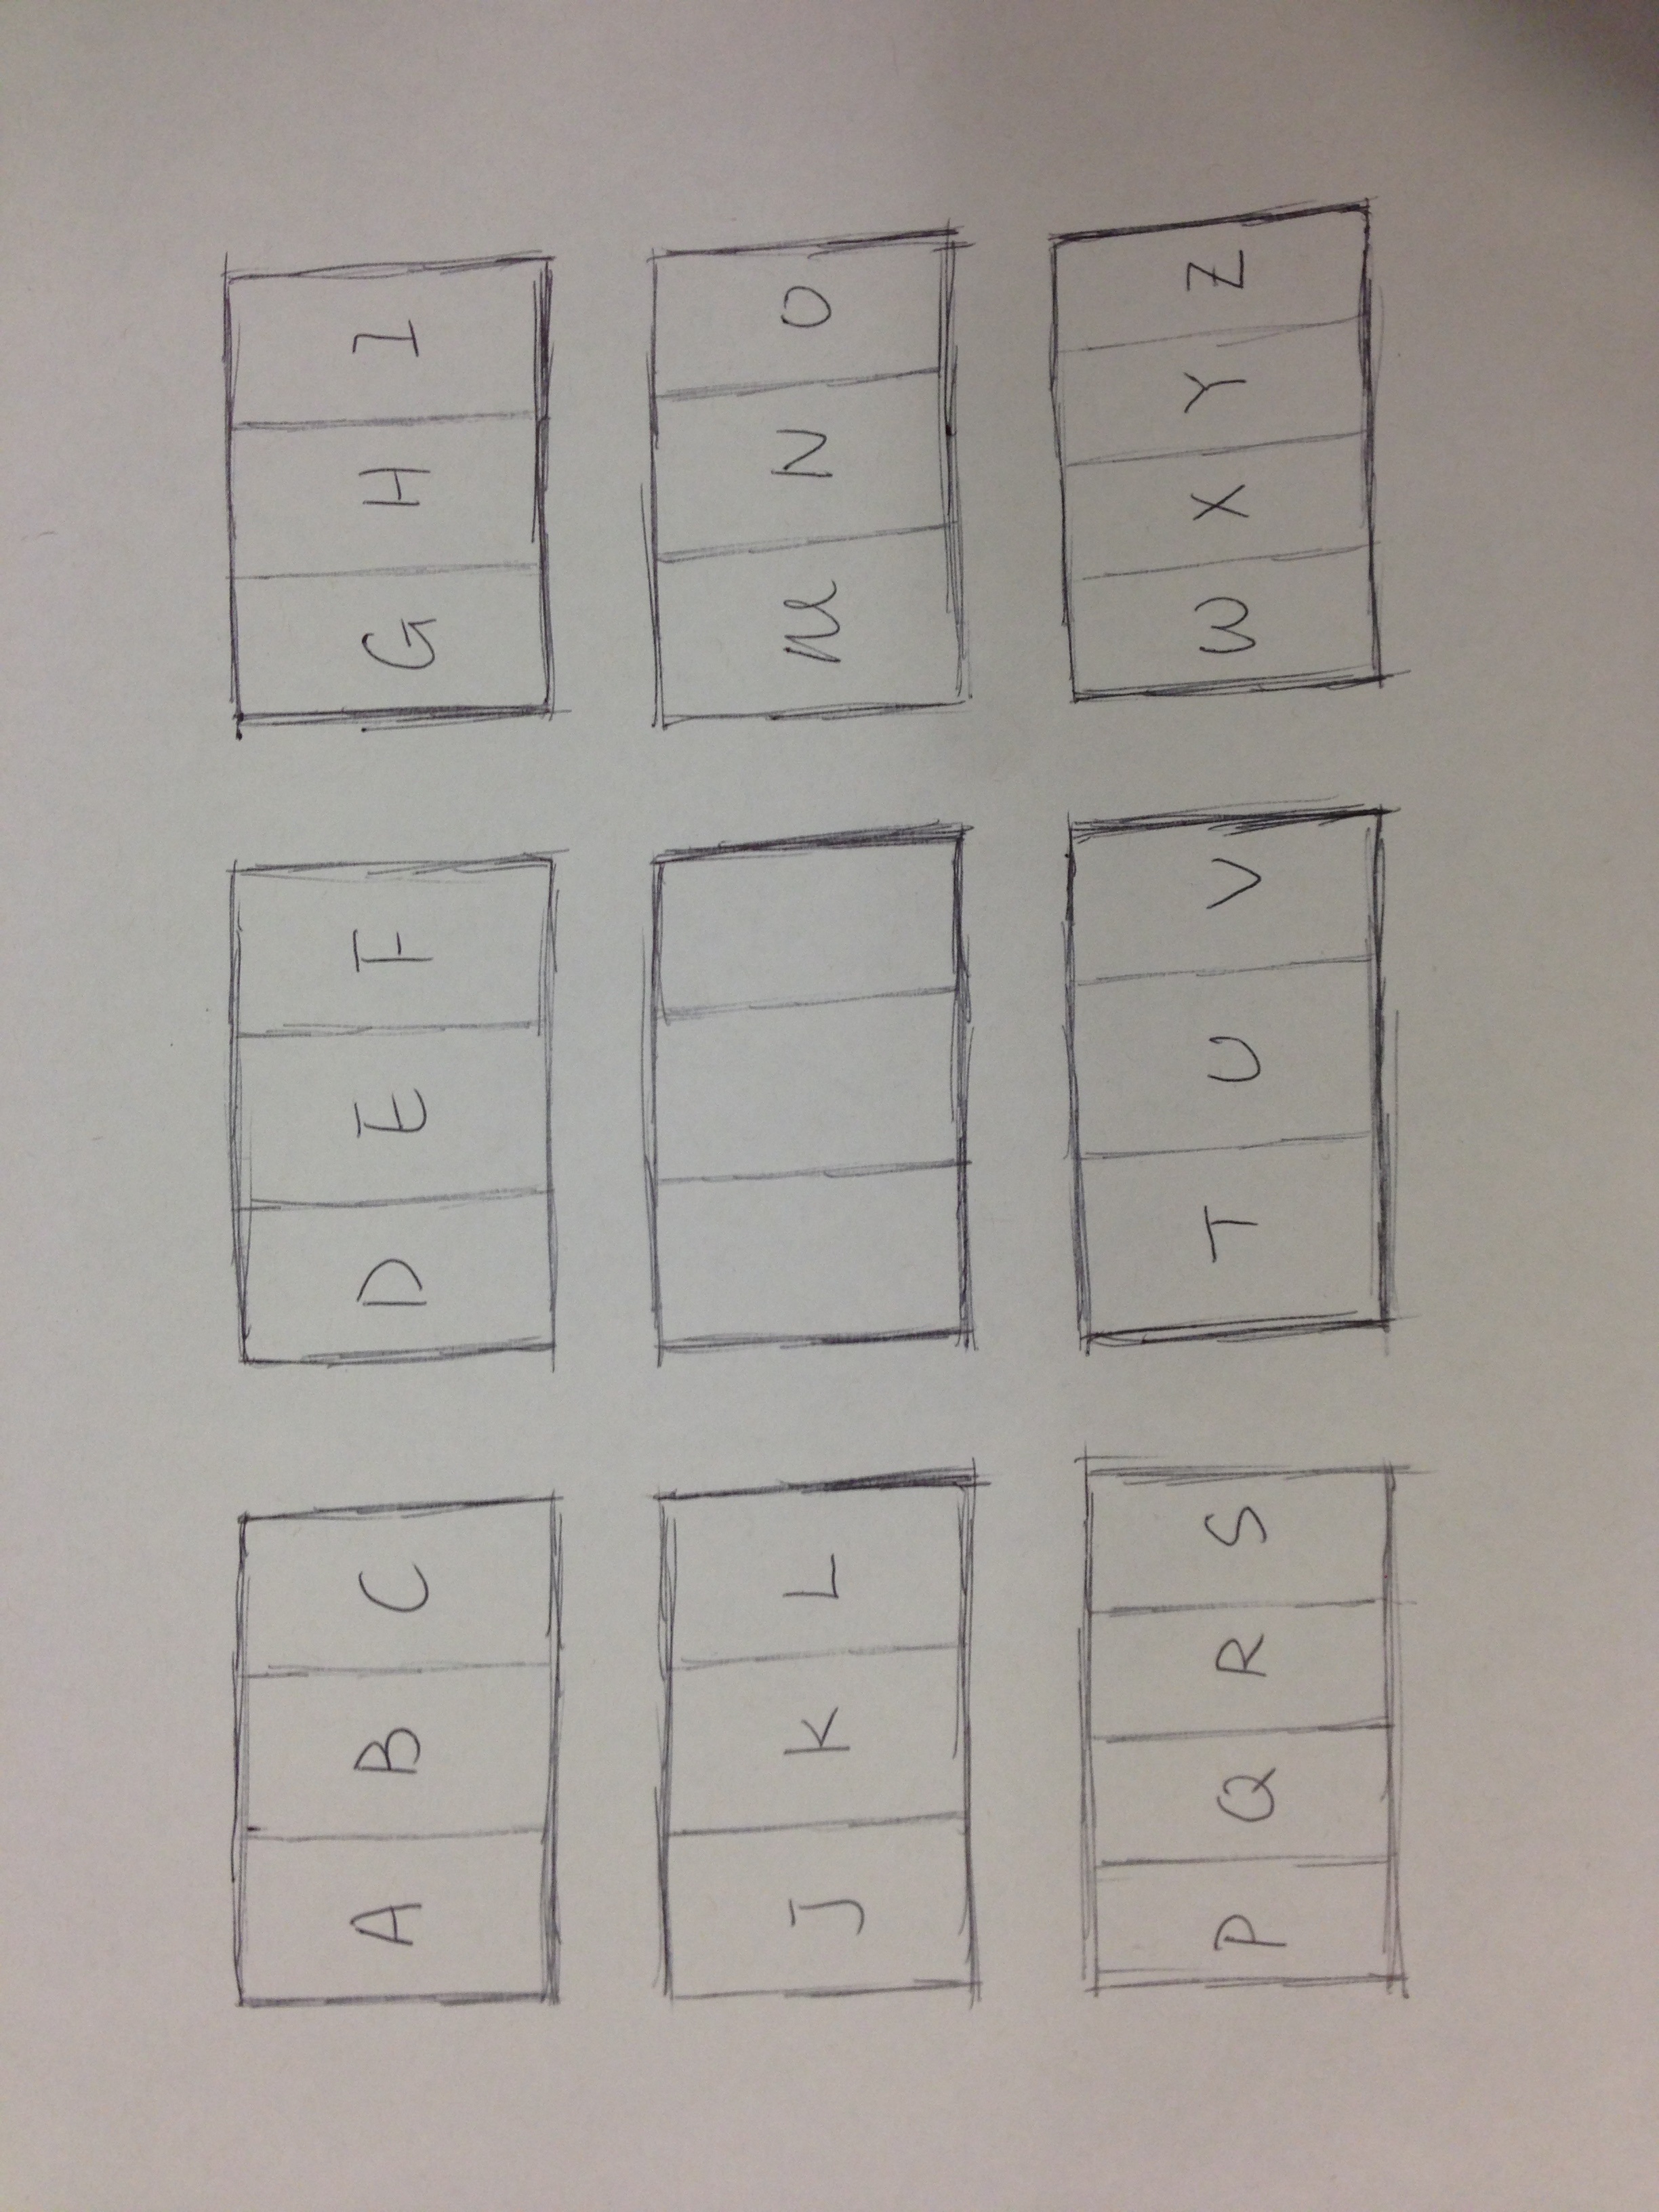 A B C D E F G H I
J K L M N O
P Q R S T U V W X Y Z